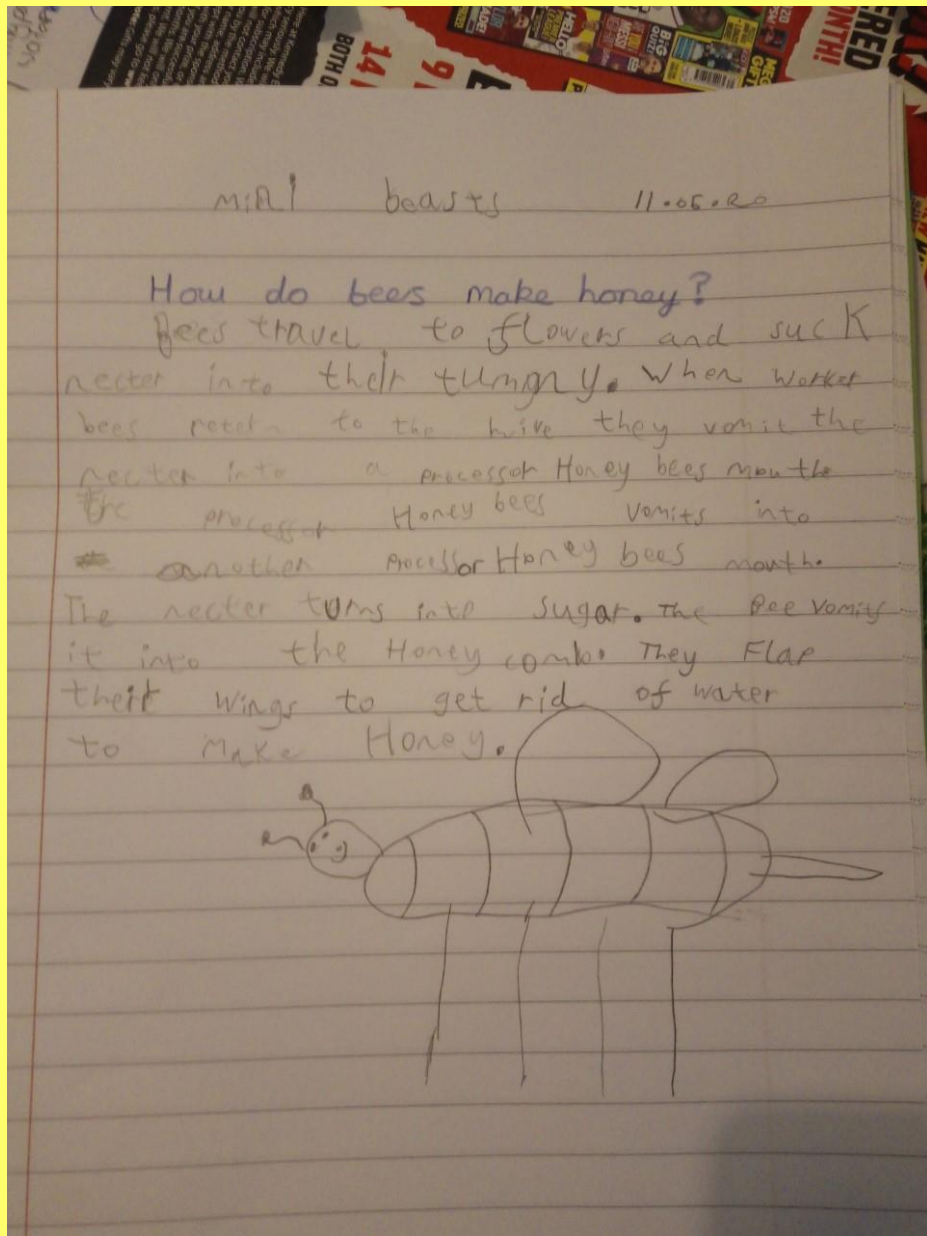 BOTH O
14
9
HELLO
BIG
QUIZ
MEG
GIFT
RED
ONTH!
mini beasts 11.05.20
How do bees make honey?
Bees travel to flowers and suck
necter into their tumgny. When worker
bees retern to the hive they vomit the
necter into a processor Honey bees mouthe
the processor Honey bees vomits into
another processor Honey bees mouth.
The necter turns into sugar. The Bee vomits
it into the Honey comb. They Flap
their wings to get rid of water
to make Honey.